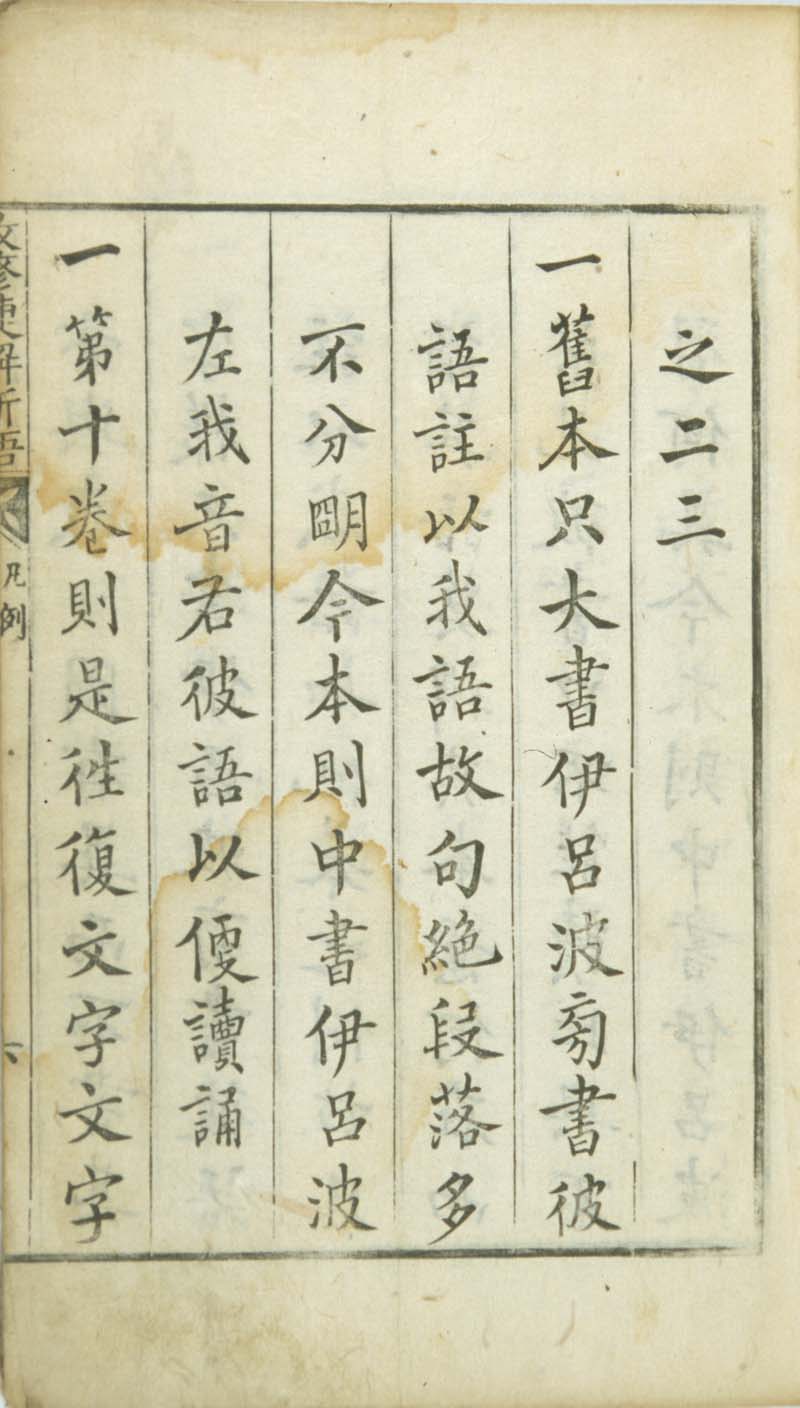 之二三
一舊本只大書伊呂波旁書彼
語註以我語故句絶段落多
不分明今本則中書伊呂波
左我音右彼語以便讀誦
一第十卷則是徃復文字文字
改修捷解新語
凡例
六